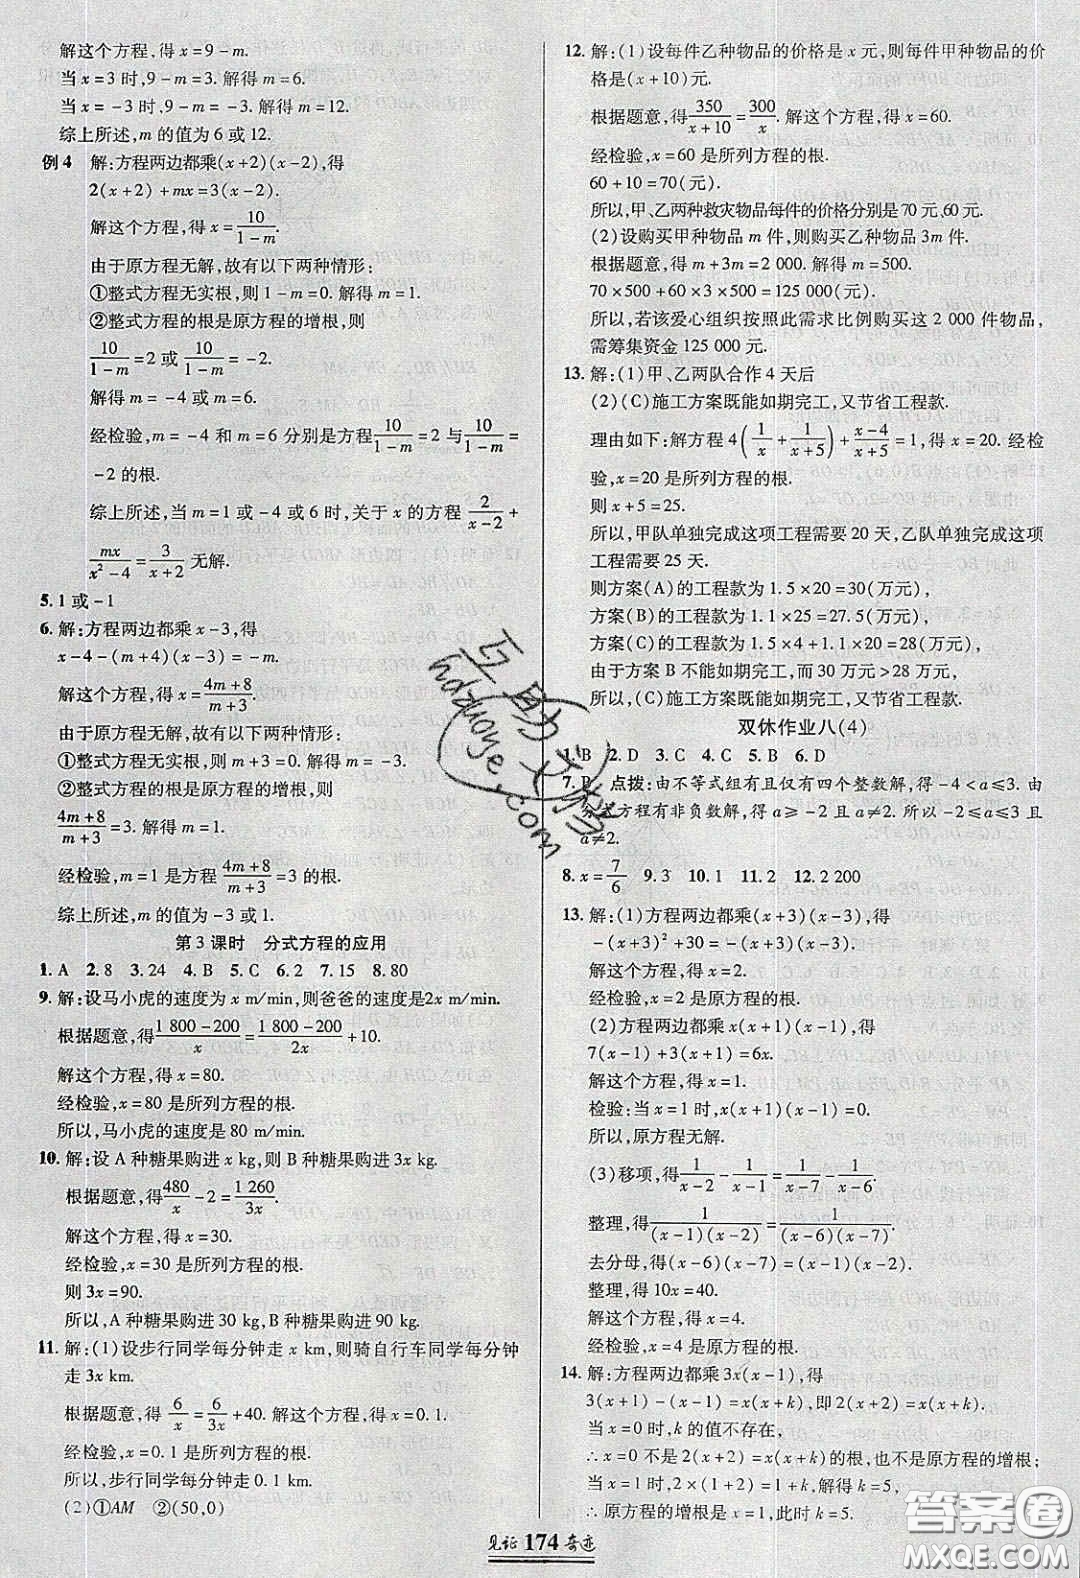 解这个方程,得 x=9-m.
当 x=3 时,9-m=3. 解得 m=6.
当 x=-3 时,9-m=-3. 解得 m=12.
综上所述,m 的值为 6 或 12.
例 4 解:方程两边都乘(x+2)(x-2),得
2(x+2)+mx=3(x-2).
解这个方程,得 x=10/(1-m).
由于原方程无解,故有以下两种情形:
①整式方程无实根,则 1-m=0. 解得 m=1.
②整式方程的根是原方程的增根,则
10/(1-m)=2 或 10/(1-m)=-2.
解得 m=-4 或 m=6.
经检验,m=-4 和 m=6 分别是方程10/(1-m)=2 与10/(1-m)=
-2 的根.
综上所述,当 m=1 或-4 或 6 时,关于 x 的方程 2/(x-2)+
mx/(x²-4)=3/(x+2) 无解.
5.1 或-1
6. 解:方程两边都乘 x-3,得
x-4-(m+4)(x-3)=-m.
解这个方程,得 x=(4m+8)/(m+3).
由于原方程无解,故有以下两种情形:
①整式方程无实根,则 m+3=0. 解得 m=-3.
②整式方程的根是原方程的增根,则
(4m+8)/(m+3)=3. 解得 m=1.
经检验,m=1 是方程(4m+8)/(m+3)=3 的根.
综上所述,m 的值为-3 或 1.
第 3 课时 分式方程的应用
1. A 2.8 3.24 4. B 5. C 6.2 7.15 8.80
9. 解:设马小虎的速度为 x m/min,则爸爸的速度是2x m/min.
根据题意,得(1 800-200)/x=(1 800-200)/2x+10.
解这个方程,得 x=80.
经检验,x=80 是所列方程的根.
所以,马小虎的速度是 80 m/min.
10. 解:设 A 种糖果购进 x kg,则 B 种糖果购进 3x kg.
根据题意,得480/x-2=1 260/3x.
解这个方程,得 x=30.
经检验,x=30 是所列方程的根.
则 3x=90.
所以,A 种糖果购进 30 kg,B 种糖果购进 90 kg.
11. 解:(1)设步行同学每分钟走 x km,则骑自行车同学每分钟
走 3x km.
根据题意,得 6/x=6/3x+40. 解这个方程,得 x=0.1.
经检验,x=0.1 是所列方程的根.
所以,步行同学每分钟走 0.1 km.
(2)①AM ②(50,0)
12. 解:(1)设每件乙种物品的价格是 x 元,则每件甲种物品的价
格是(x+10)元.
根据题意,得350/(x+10)=300/x. 解这个方程,得 x=60.
经检验,x=60 是所列方程的根.
60+10=70(元).
所以,甲、乙两种救灾物品每件的价格分别是 70 元、60 元.
(2)设购买甲种物品 m 件,则购买乙种物品 3m 件.
根据题意,得 m+3m=2 000. 解得 m=500.
70×500+60×3×500=125 000(元).
所以,若该爱心组织按照此需求比例购买这 2 000 件物品,
需筹集资金 125 000 元.
13. 解:(1)甲、乙两队合作 4 天后
(2)(C)施工方案既能如期完工,又节省工程款.
理由如下:解方程 4(1/x+1/(x+5))+(x-4)/(x+5)=1,得 x=20. 经检
验,x=20 是所列方程的根.
则 x+5=25.
所以,甲队单独完成这项工程需要 20 天,乙队单独完成这项
工程需要 25 天.
则方案(A)的工程款为 1.5×20=30(万元),
方案(B)的工程款为 1.1×25=27.5(万元),
方案(C)的工程款为 1.5×4+1.1×20=28(万元),
由于方案 B 不能如期完工,而 30 万元>28 万元,
所以,(C)施工方案既能如期完工,又节省工程款.
双休作业八(4)
1. B 2. D 3. C 4. C 5. B 6. D
7. B 点拨:由不等式组有且仅有四个整数解,得-4<a≤3. 由
分式方程有非负数解,得 a≥-2 且 a≠2. 所以-2≤a≤3 且
a≠2.
8. x=7/6 9.3 10.1 11.2 12.2 200
13. 解:(1)方程两边都乘(x+3)(x-3),得
-(x+3)²+30=(x+3)(3-x).
解这个方程,得 x=2.
经检验,x=2 是原方程的根.
(2)方程两边都乘 x(x+1)(x-1),得
7(x-1)+3(x+1)=6x.
解这个方程,得 x=1.
检验:当 x=1 时,x(x+1)(x-1)=0.
所以,原方程无解.
(3)移项,得1/(x-2)-1/(x-1)=1/(x-7)-1/(x-6).
整理,得1/((x-1)(x-2))=1/((x-6)(x-7)).
去分母,得(x-6)(x-7)=(x-1)(x-2).
整理,得 10x=40.
解这个方程,得 x=4.
经检验,x=4 是原方程的根.
14. 解:方程两边都乘 3x(x-1),得
3(x+k)-(x-1)=x(x+k),即 2(x+2)=x(x+k).
当 x=0 时,k 的值不存在,
∴x=0 也不是 2(x+2)=x(x+k)的根,不是原方程的增根;
当 x=1 时,2×(1+2)=1×(1+k),解得 k=5.
∴原方程的增根是 x=1,此时 k=5.
见证 174 奇迹
互助文档
hdzuoye.com
答案圈
MXQE.COM